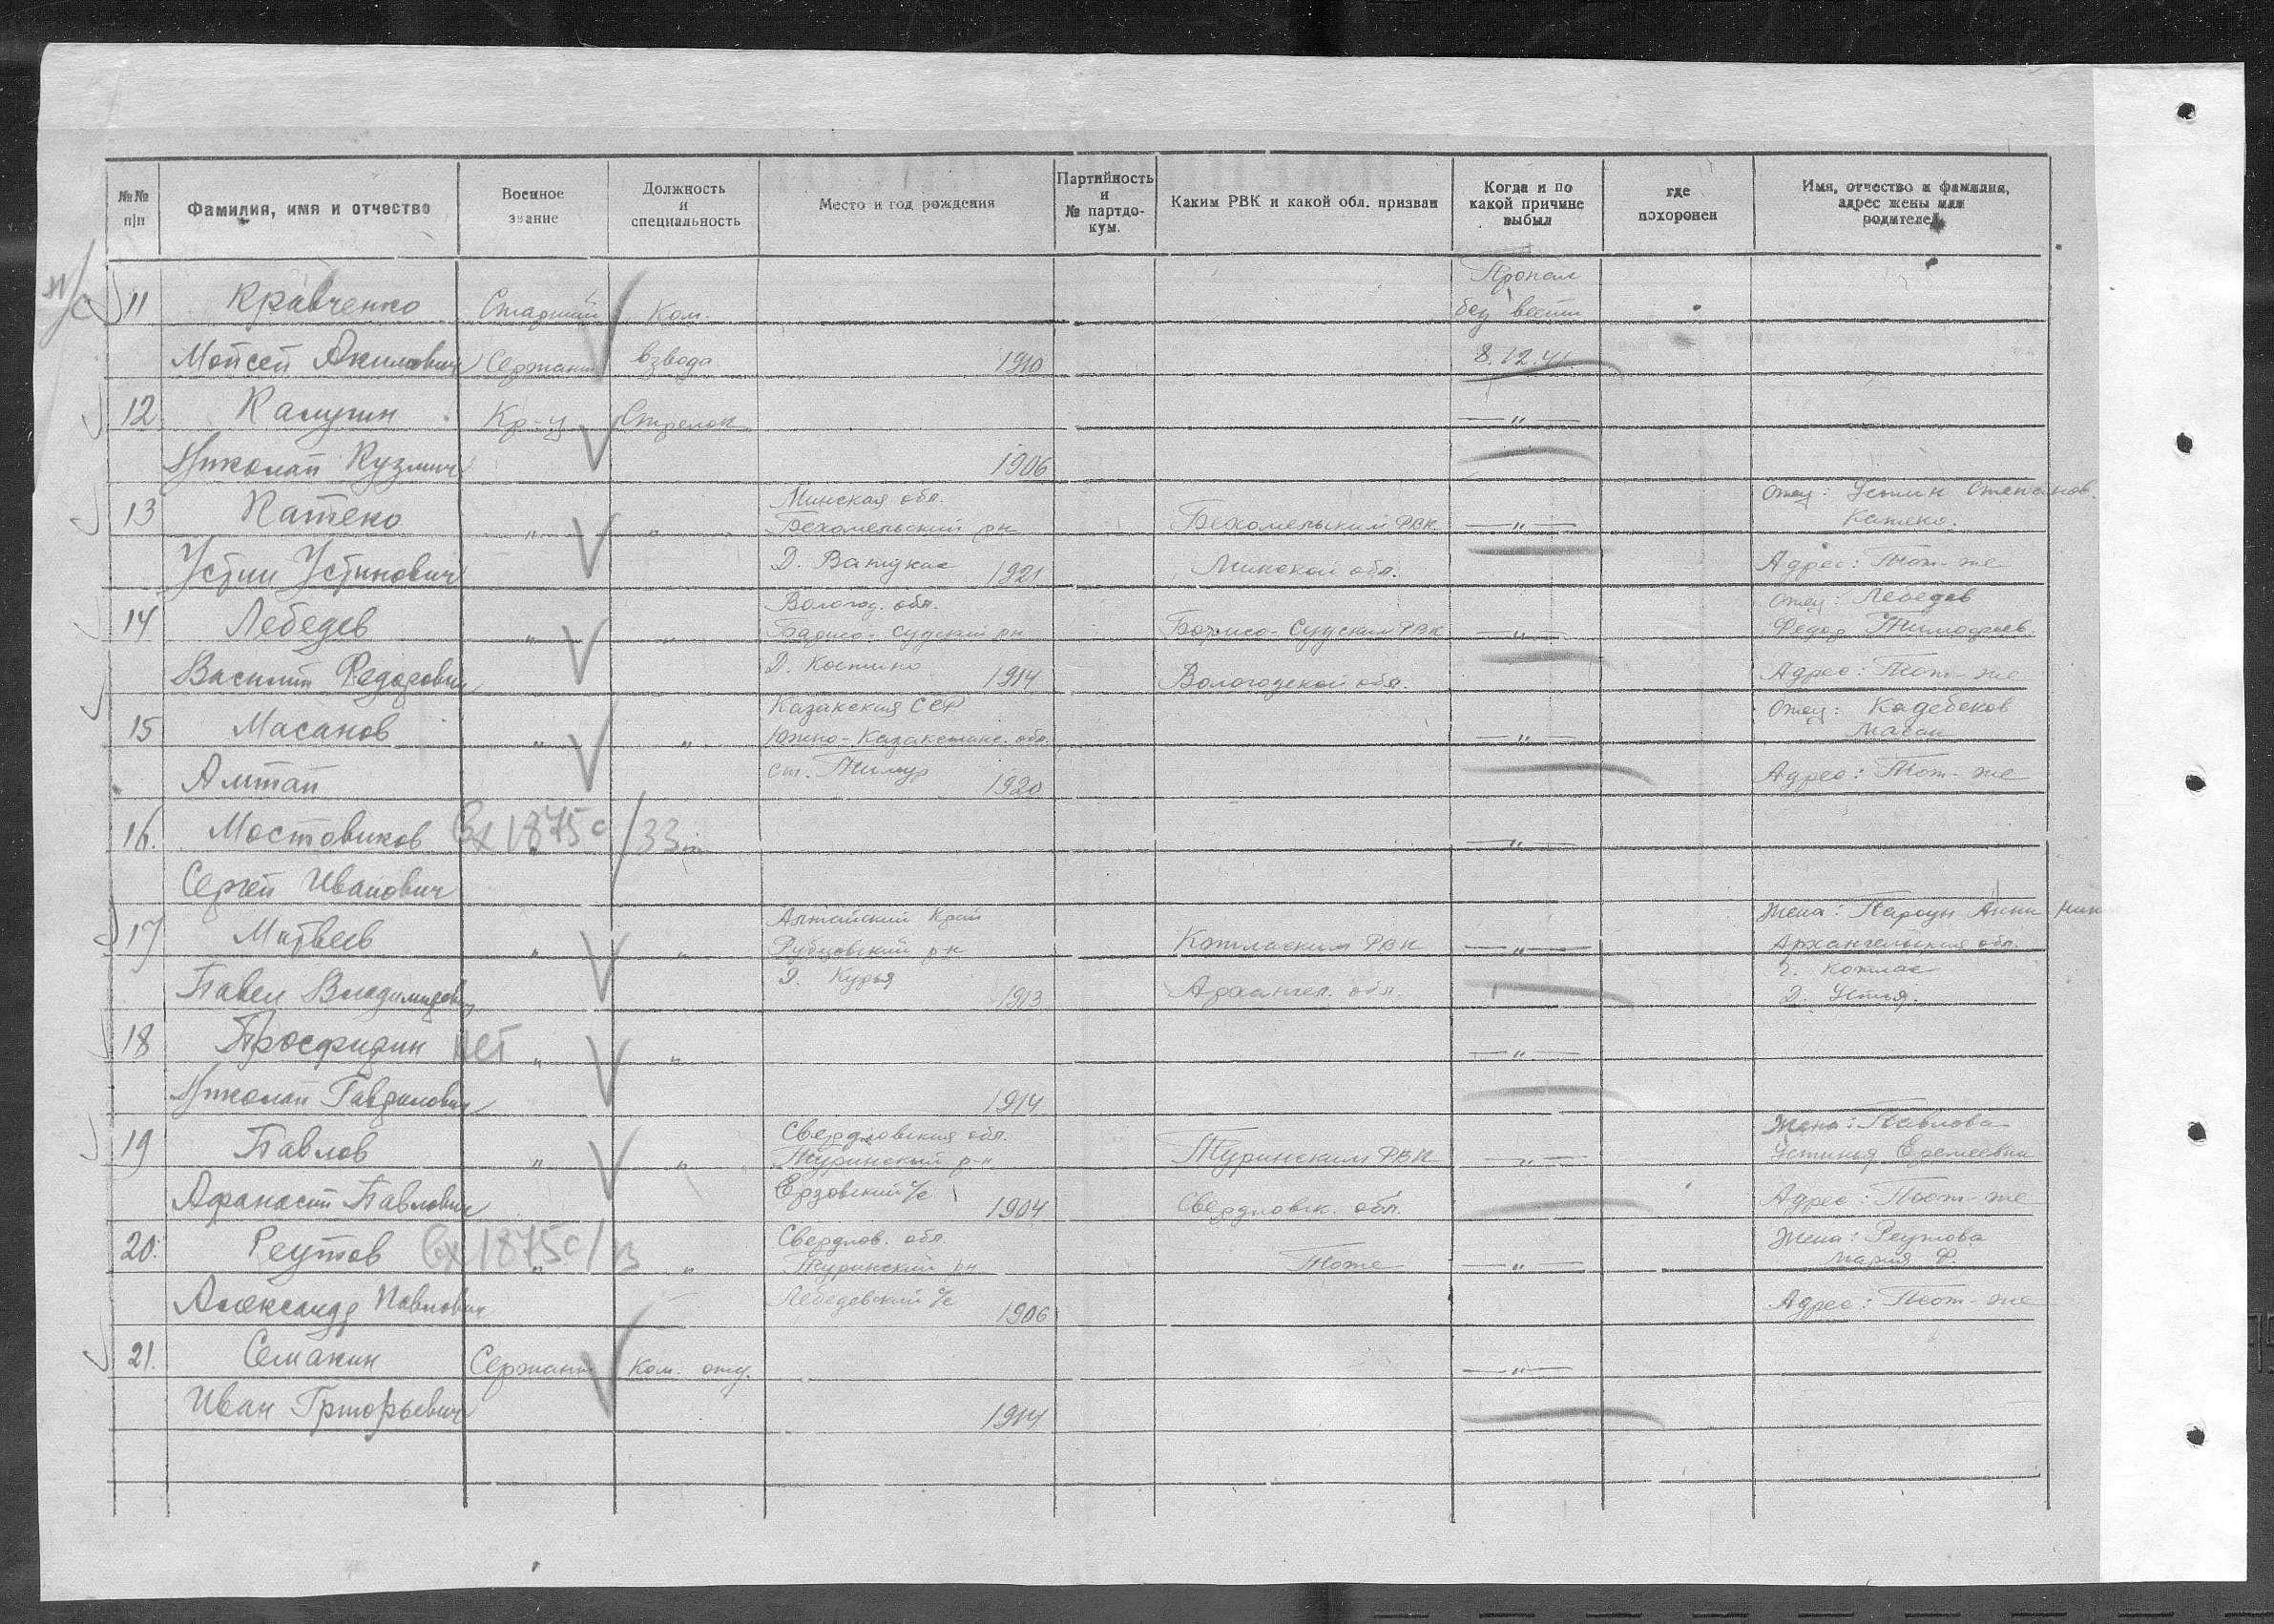 №№ п/п
Фамилия, имя и отчество
Военное звание
Должность и специальность
Место и год рождения
Партийность и № партдокум.
Каким РВК и какой обл. призван
Когда и по какой причине выбыл
где похоронен
Имя, отчество и фамилия, адрес жены или родителей
Пропал
11 Кравченко Старший Ком. без вести
Мойсей Акимович Сержант взвода 1910 8.12.41
12 Калугин Кр-ц Стрелок — " —
Николай Кузмич 1906
Минская обл. Отец: Устин Степанов.
13 Катеко " " Бехомельский рн Бехомельским РВК — " — Катеко.
Устин Устинович Д. 1921 Минской обл. Адрес: Тот-же
Вологод. обл. Отец: Лебедев
14 Лебедев " " Борисо-Судский рн Борисо-Судским РВК — " — Федор Тимофеев.
Василий Федорович Д. Костино 1914 Вологодской обл. Адрес: Тот-же
Казакская ССР Отец: Кадебеков
15 Масанов " " Южно-Казакстанс. обл. — " — Масан
Алтай ст. Тимур 1920 Адрес: Тот-же
16. Мостовиков Вх 1875с/33 " — " —
Сергей Иванович
Алтайский Край Жена: Анна Ник
17 Матвеев " " Рубцовский р-н Котласким РВК — " — Архангельская обл.
Павел Владимирович Д. Курья 1913 Архангел. обл. г. Котлас
Д. Устья.
18 Просфирин нет " " — " —
Николай Гаврилович 1914
Свердловская обл. Жена: Павлова
19 Павлов " " Туринский р-н Туринским РВК — " — Устинья Еремеевна
Афанасий Павлович Ерзовский с/с 1904 Свердловск. обл. Адрес: Тот-же
Свердлов. обл. Жена: Реутова
20. Реутов Вх 1875с/ " " Туринский рн Тоже — " — Мария Ф.
Александр Павлович Лебедевский с/с 1906 Адрес: Тот-же
21. Семакин Сержант Ком. отд. — " —
Иван Григорьевич 1914